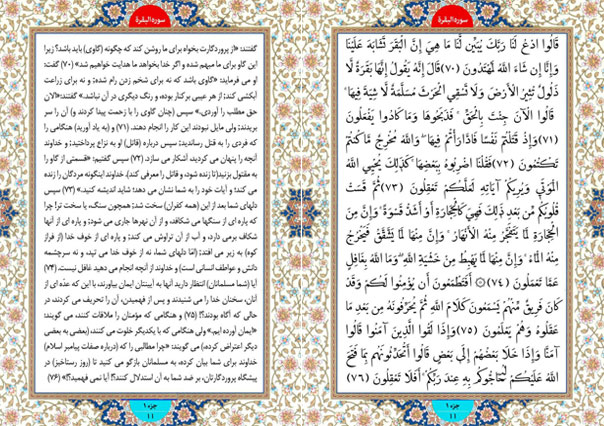 سورة البقرة
قَالُوا ادْعُ لَنَا رَبَّكَ يُبَيِّن لَّنَا مَا هِيَ إِنَّ الْبَقَرَ تَشَابَهَ عَلَيْنَا
وَإِنَّا إِن شَاءَ اللَّهُ لَمُهْتَدُونَ (٧٠) قَالَ إِنَّهُ يَقُولُ إِنَّهَا بَقَرَةٌ لَّا
ذَلُولٌ تُثِيرُ الْأَرْضَ وَلَا تَسْقِي الْحَرْثَ مُسَلَّمَةٌ لَّا شِيَةَ فِيهَا ۚ
قَالُوا الْآنَ جِئْتَ بِالْحَقِّ ۚ فَذَبَحُوهَا وَمَا كَادُوا يَفْعَلُونَ
(٧١) وَإِذْ قَتَلْتُمْ نَفْسًا فَادَّارَأْتُمْ فِيهَا ۖ وَاللَّهُ مُخْرِجٌ مَّا كُنتُمْ
تَكْتُمُونَ (٧٢) فَقُلْنَا اضْرِبُوهُ بِبَعْضِهَا ۚ كَذَٰلِكَ يُحْيِي اللَّهُ
الْمَوْتَىٰ وَيُرِيكُمْ آيَاتِهِ لَعَلَّكُمْ تَعْقِلُونَ (٧٣) ثُمَّ قَسَتْ
قُلُوبُكُم مِّن بَعْدِ ذَٰلِكَ فَهِيَ كَالْحِجَارَةِ أَوْ أَشَدُّ قَسْوَةً ۚ وَإِنَّ مِنَ
الْحِجَارَةِ لَمَا يَتَفَجَّرُ مِنْهُ الْأَنْهَارُ ۚ وَإِنَّ مِنْهَا لَمَا يَشَّقَّقُ فَيَخْرُجُ
مِنْهُ الْمَاءُ ۚ وَإِنَّ مِنْهَا لَمَا يَهْبِطُ مِنْ خَشْيَةِ اللَّهِ ۗ وَمَا اللَّهُ بِغَافِلٍ
عَمَّا تَعْمَلُونَ (٧٤) ۞ أَفَتَطْمَعُونَ أَن يُؤْمِنُوا لَكُمْ وَقَدْ
كَانَ فَرِيقٌ مِّنْهُمْ يَسْمَعُونَ كَلَامَ اللَّهِ ثُمَّ يُحَرِّفُونَهُ مِن بَعْدِ مَا
عَقَلُوهُ وَهُمْ يَعْلَمُونَ (٧٥) وَإِذَا لَقُوا الَّذِينَ آمَنُوا قَالُوا
آمَنَّا وَإِذَا خَلَا بَعْضُهُمْ إِلَىٰ بَعْضٍ قَالُوا أَتُحَدِّثُونَهُم بِمَا فَتَحَ
اللَّهُ عَلَيْكُمْ لِيُحَاجُّوكُم بِهِ عِندَ رَبِّكُمْ ۚ أَفَلَا تَعْقِلُونَ (٧٦)
جزء ١
١١
سورة البقرة
گفتند: «از پروردگارت بخواه برای ما روشن کند که چگونه (گاوی) باید باشد؟ زیرا
این گاو برای ما مبهم شده و اگر خدا بخواهد ما هدایت خواهیم شد» (٧٠) گفت:
او می فرماید: «گاوی باشد که نه برای شخم زدن رام شده; و نه برای زراعت
آبکشی کند; از هر عیبی برکنار بوده، و رنگ دیگری در آن نباشد.» گفتند:«الان
حق مطلب را آوردی.» سپس (چنان گاوی را با زحمت پیدا کردند و) آن را سر
بریدند; ولی مایل نبودند این کار را انجام دهند. (٧١) و (به یاد آورید) هنگامی را
که فردی را به قتل رساندید; سپس درباره (قاتل) او به نزاع پرداختید; و خداوند
آنچه را پنهان می کردید، آشکار می سازد. (٧٢) سپس گفتیم: «قسمتی از گاو را
به مقتول بزنید(تا زنده شود، و قاتل را معرفی کند). خداوند اینگونه مردگان را زنده
می کند; و آیات خود را به شما نشان می دهد; شاید اندیشه کنید.» (٧٣) سپس
دلهای شما بعد از این (همه کفران) سخت شد; همچون سنگ، یا سخت تر! چرا
که پاره ای از سنگها می شکافد، و از آن نهرها جاری می شود; و پاره ای از آنها
شکاف برمی دارد، و آب از آن تراوش می کند; و پاره ای از خوف خدا (از فراز
کوه) به زیر می افتد; (امّا دلهای شما، نه از خوف خدا می تپد، و نه سرچشمه
دانش و عواطف انسانی است) و خداوند از آنچه انجام می دهید غافل نیست. (٧٤)
آیا (شما مسلمانان) انتظار دارید آنها به آیینتان ایمان بیاورند، با این که عدّه ای از
آنان، سخنان خدا را می شنیدند و پس از فهمیدن، آن را تحریف می کردند در
حالی که آگاه بودند؟! (٧٥) و هنگامی که مؤمنان را ملاقات کنند، می گویند:
«ایمان آورده ایم.» ولی هنگامی که با یکدیگر خلوت می کنند، (بعضی به بعضی
دیگر اعتراض کرده)، می گویند: «چرا مطالبی را که (درباره صفات پیامبر اسلام)
خداوند برای شما بیان کرده، به مسلمانان بازگو می کنید تا (روز رستاخیز) در
پیشگاه پروردگارتان، بر ضد شما به آن استدلال کنند؟! آیا نمی فهمید؟!» (٧٦)
جزء ١
١١